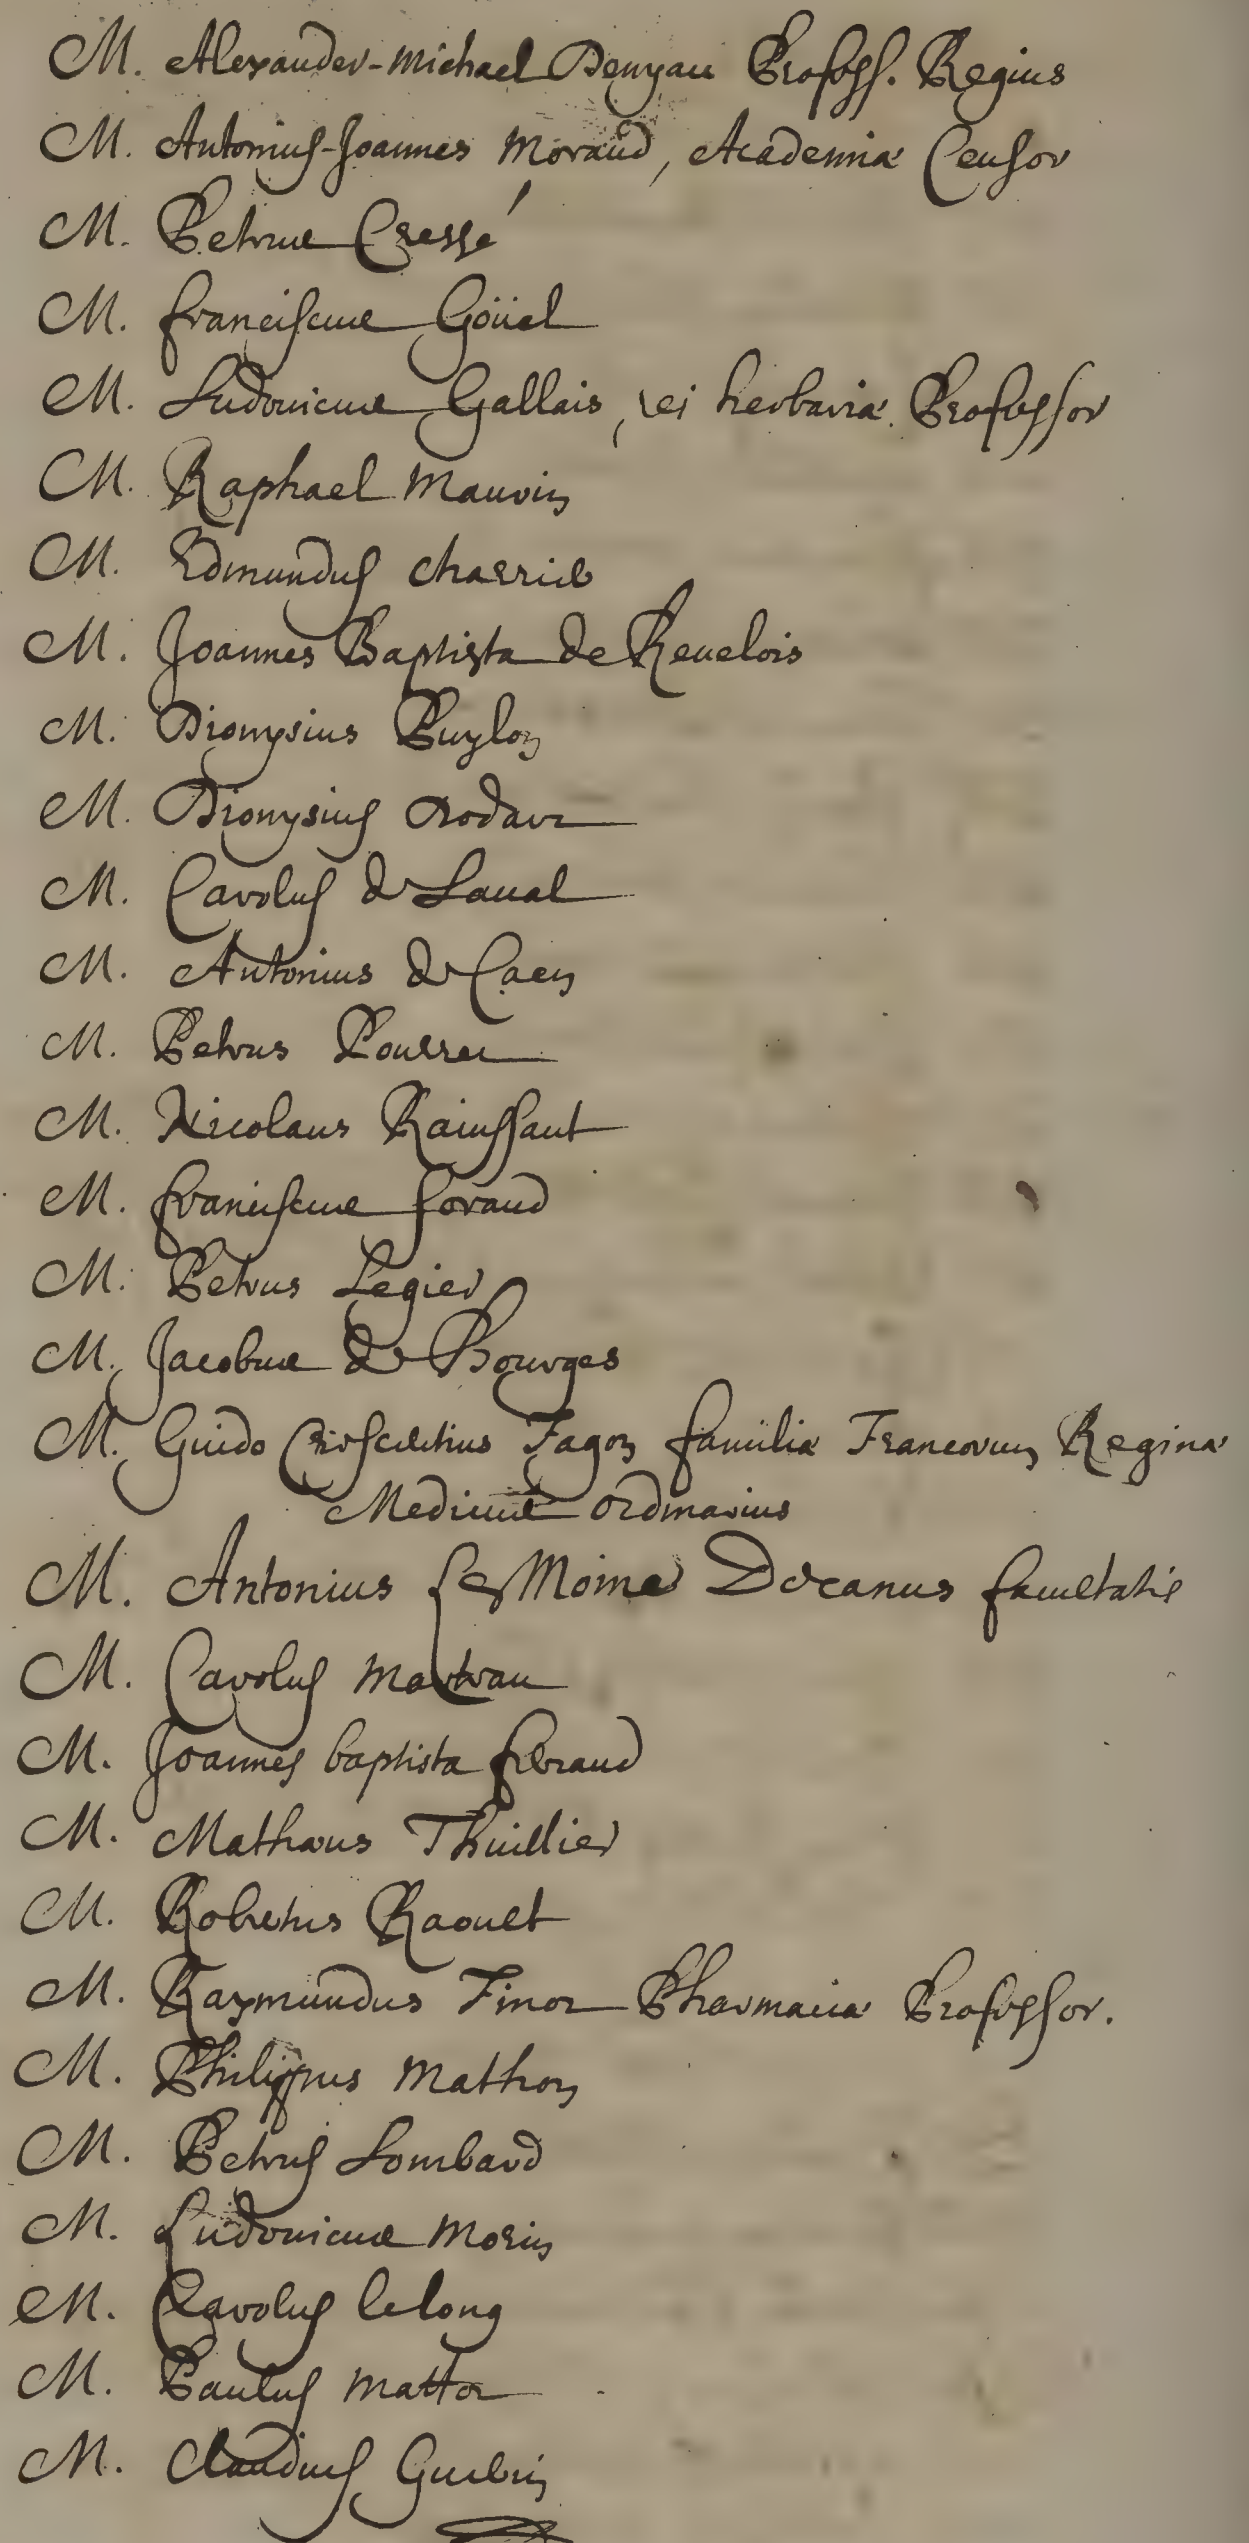 M. Alexander-Michael Denyau Profess. Regius
M. Antonius-Joannes Moraud, Academiæ Censor
M. Petrus Cressé
M. franciscus Goüel
M. Ludovicus Gallais, rei herbariæ Professor
M. Raphael Mauvin
M. Edmundus Charric
M. Joannes Baptista de Revelois
M. Dionysius Puylon
M. Dionysius Dodart
M. Carolus de Laual
M. Antonius de Caen
M. Petrus Pourret
M. Nicolaus Rainssant
M. franciscus foraud
M. Petrus Legier
M. Jacobus de Bourges
M. Guido Fagon familiæ Francorum Reginæ
Medicus ordinarius
M. Antonius Le Moine Decanus facultatis
M. Carolus Marteau
M. Joannes baptista
M. Mathæus Thuillier
M. Robertus Raoult
M. Raymundus Finot Pharmaciæ Professor.
M. Philippus Mathon
M. Petrus Lombard
M. Ludovicus Morin
M. Carolus lelong
M. Paulus Mattot
M. Claudius Guerin